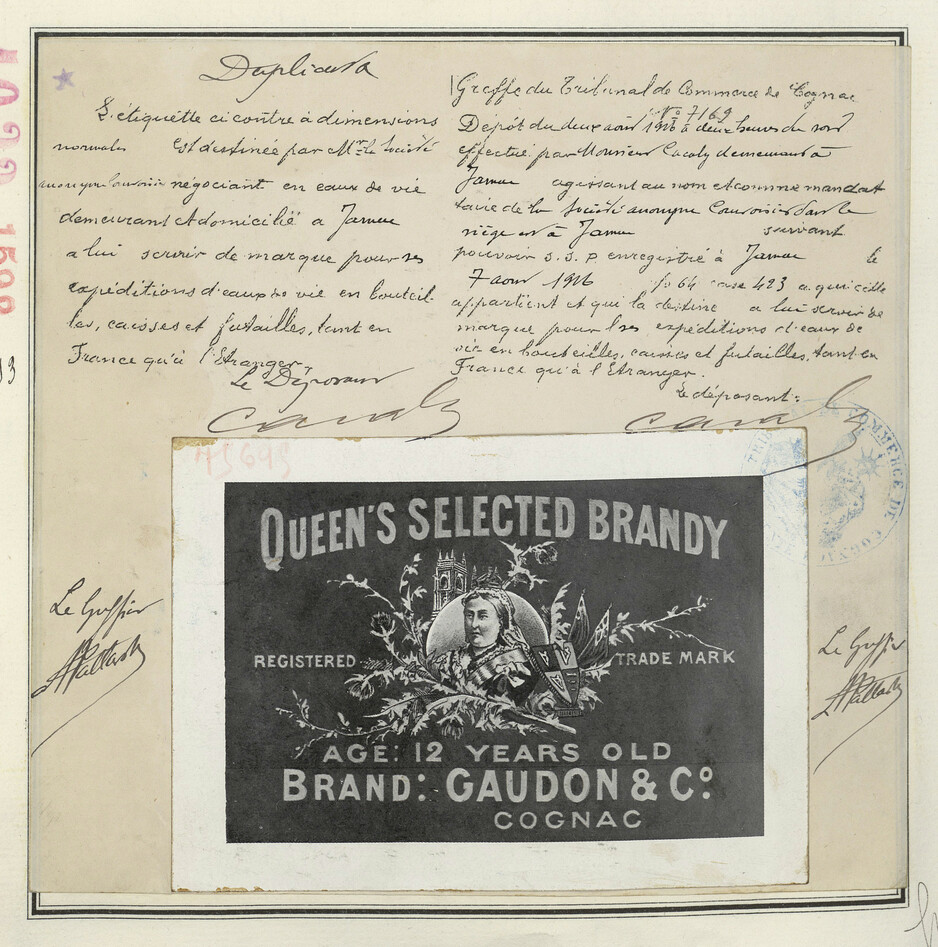 Duplicata
L'étiquette ci contre à dimensions
normales est destinée par Mr. la Société
anonyme Courvoisier négociant en eaux de vie
demeurant et domicilié à Jarnac
à lui servir de marque pour ses
expéditions d'eaux de vie en bouteil-
les, caisses et futailles, tant en
France qu'à l'Etranger.
Le Déposant
Greffe du Tribunal de Commerce de Cognac
No 7169
Dépôt du deux août 1916 à deux heures du soir
effectué par Monsieur demeurant à
Jarnac agissant au nom et comme mandat
taire de la Société anonyme Courvoisier dont le
siège est à Jarnac suivant
pouvoir S.S.P. enregistré à Jarnac le
7 août 1916 fo 64 case 423 a qui cette
appartient et qui la destine à lui servir de
marque pour ses expéditions d'eaux de
vie en bouteilles, caisses et futailles, tant en
France qu'à l'Etranger.
Le déposant:
TRIBUNAL DE COMMERCE DE COGNAC
QUEEN'S SELECTED BRANDY
REGISTERED TRADE MARK
AGE: 12 YEARS OLD
BRAND: GAUDON & Co.
COGNAC
Le Greffier
Le Greffier